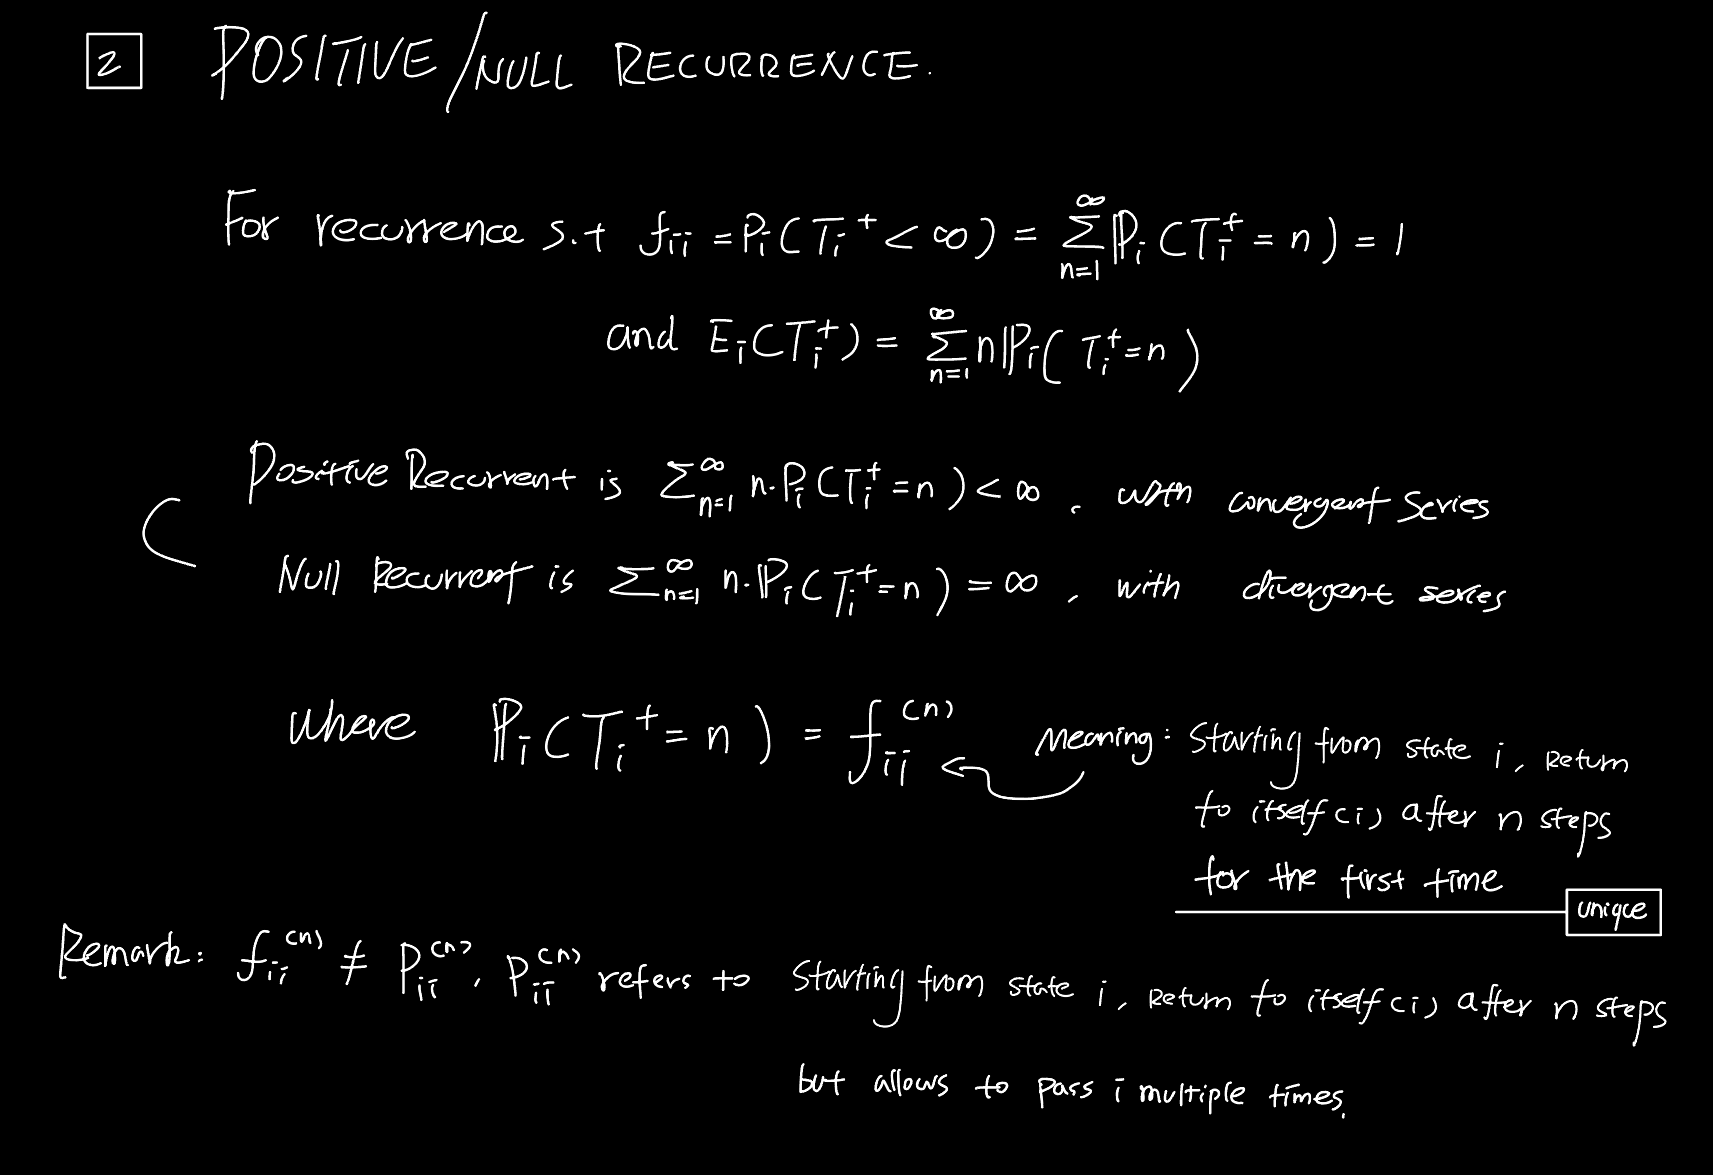 2 POSITIVE/NULL RECURRENCE.
For recurrence s.t f_{ii} = P_i(T_i^+ < ∞) = ∑_{n=1}^{∞} ℙ_i(T_i^+ = n) = 1
and E_i(T_i^+) = ∑_{n=1}^{∞} nℙ_i(T_i^+ = n)
Positive Recurrent is ∑_{n=1}^{∞} n·P_i(T_i^+ = n) < ∞, with convergent series
Null Recurrent is ∑_{n=1}^{∞} n·ℙ_i(T_i^+ = n) = ∞, with divergent series
where ℙ_i(T_i^+ = n) = f_{ii}^{(n)} Meaning: Starting from state i, Return
to itself (i) after n steps
for the first time
unique
Remark: f_{ii}^{(n)} ≠ P_{ii}^{(n)}, P_{ii}^{(n)} refers to Starting from state i, Return to itself (i) after n steps
but allows to pass i multiple times.